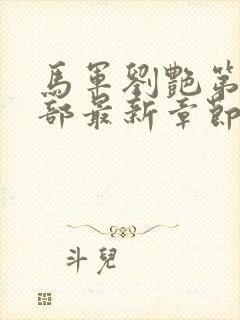 馬軍劉艷第
部最新章節
斗兒